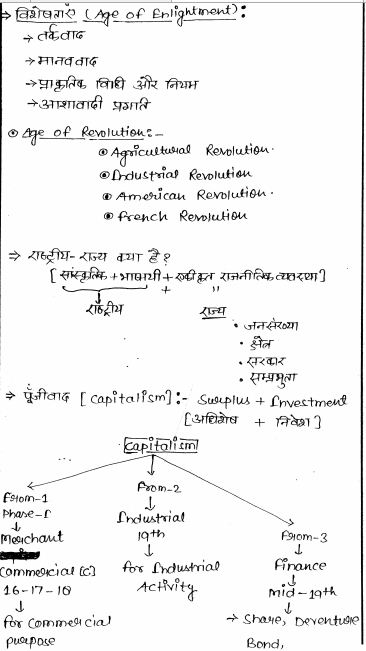 ⇒ विशेषताएँ (Age of Enlightment):
→ तर्कवाद
→ मानववाद
→ प्राकृतिक विधि और नियम
→ आशावादी प्रगति
⊙ Age of Revolution:-
⊙ Agricultural Revolution.
⊙ Industrial Revolution.
⊙ American Revolution.
⊙ French Revolution
⇒ राष्ट्रीय-राज्य क्या है?
[सांस्कृतिक + भाषायी + एकीकृत राजनीतिक व्यवस्था]
+ "
राष्ट्रीय राज्य
• जनसंख्या
• क्षेत्र
• सरकार
• सम्प्रभुता
⇒ पूँजीवाद [Capitalism]:- Surplus + Investment
[अधिशेष + निवेश]
Capitalism
From-1
Phase-I
↓
Merchant
Commercial [C]
16-17-18
↓
for Commercial
purpose
From-2
↓
Industrial
19th
↓
for Industrial
Activity
From-3
↓
Finance
↓
Mid-19th
↓
→ Share, Deventure
Bond,